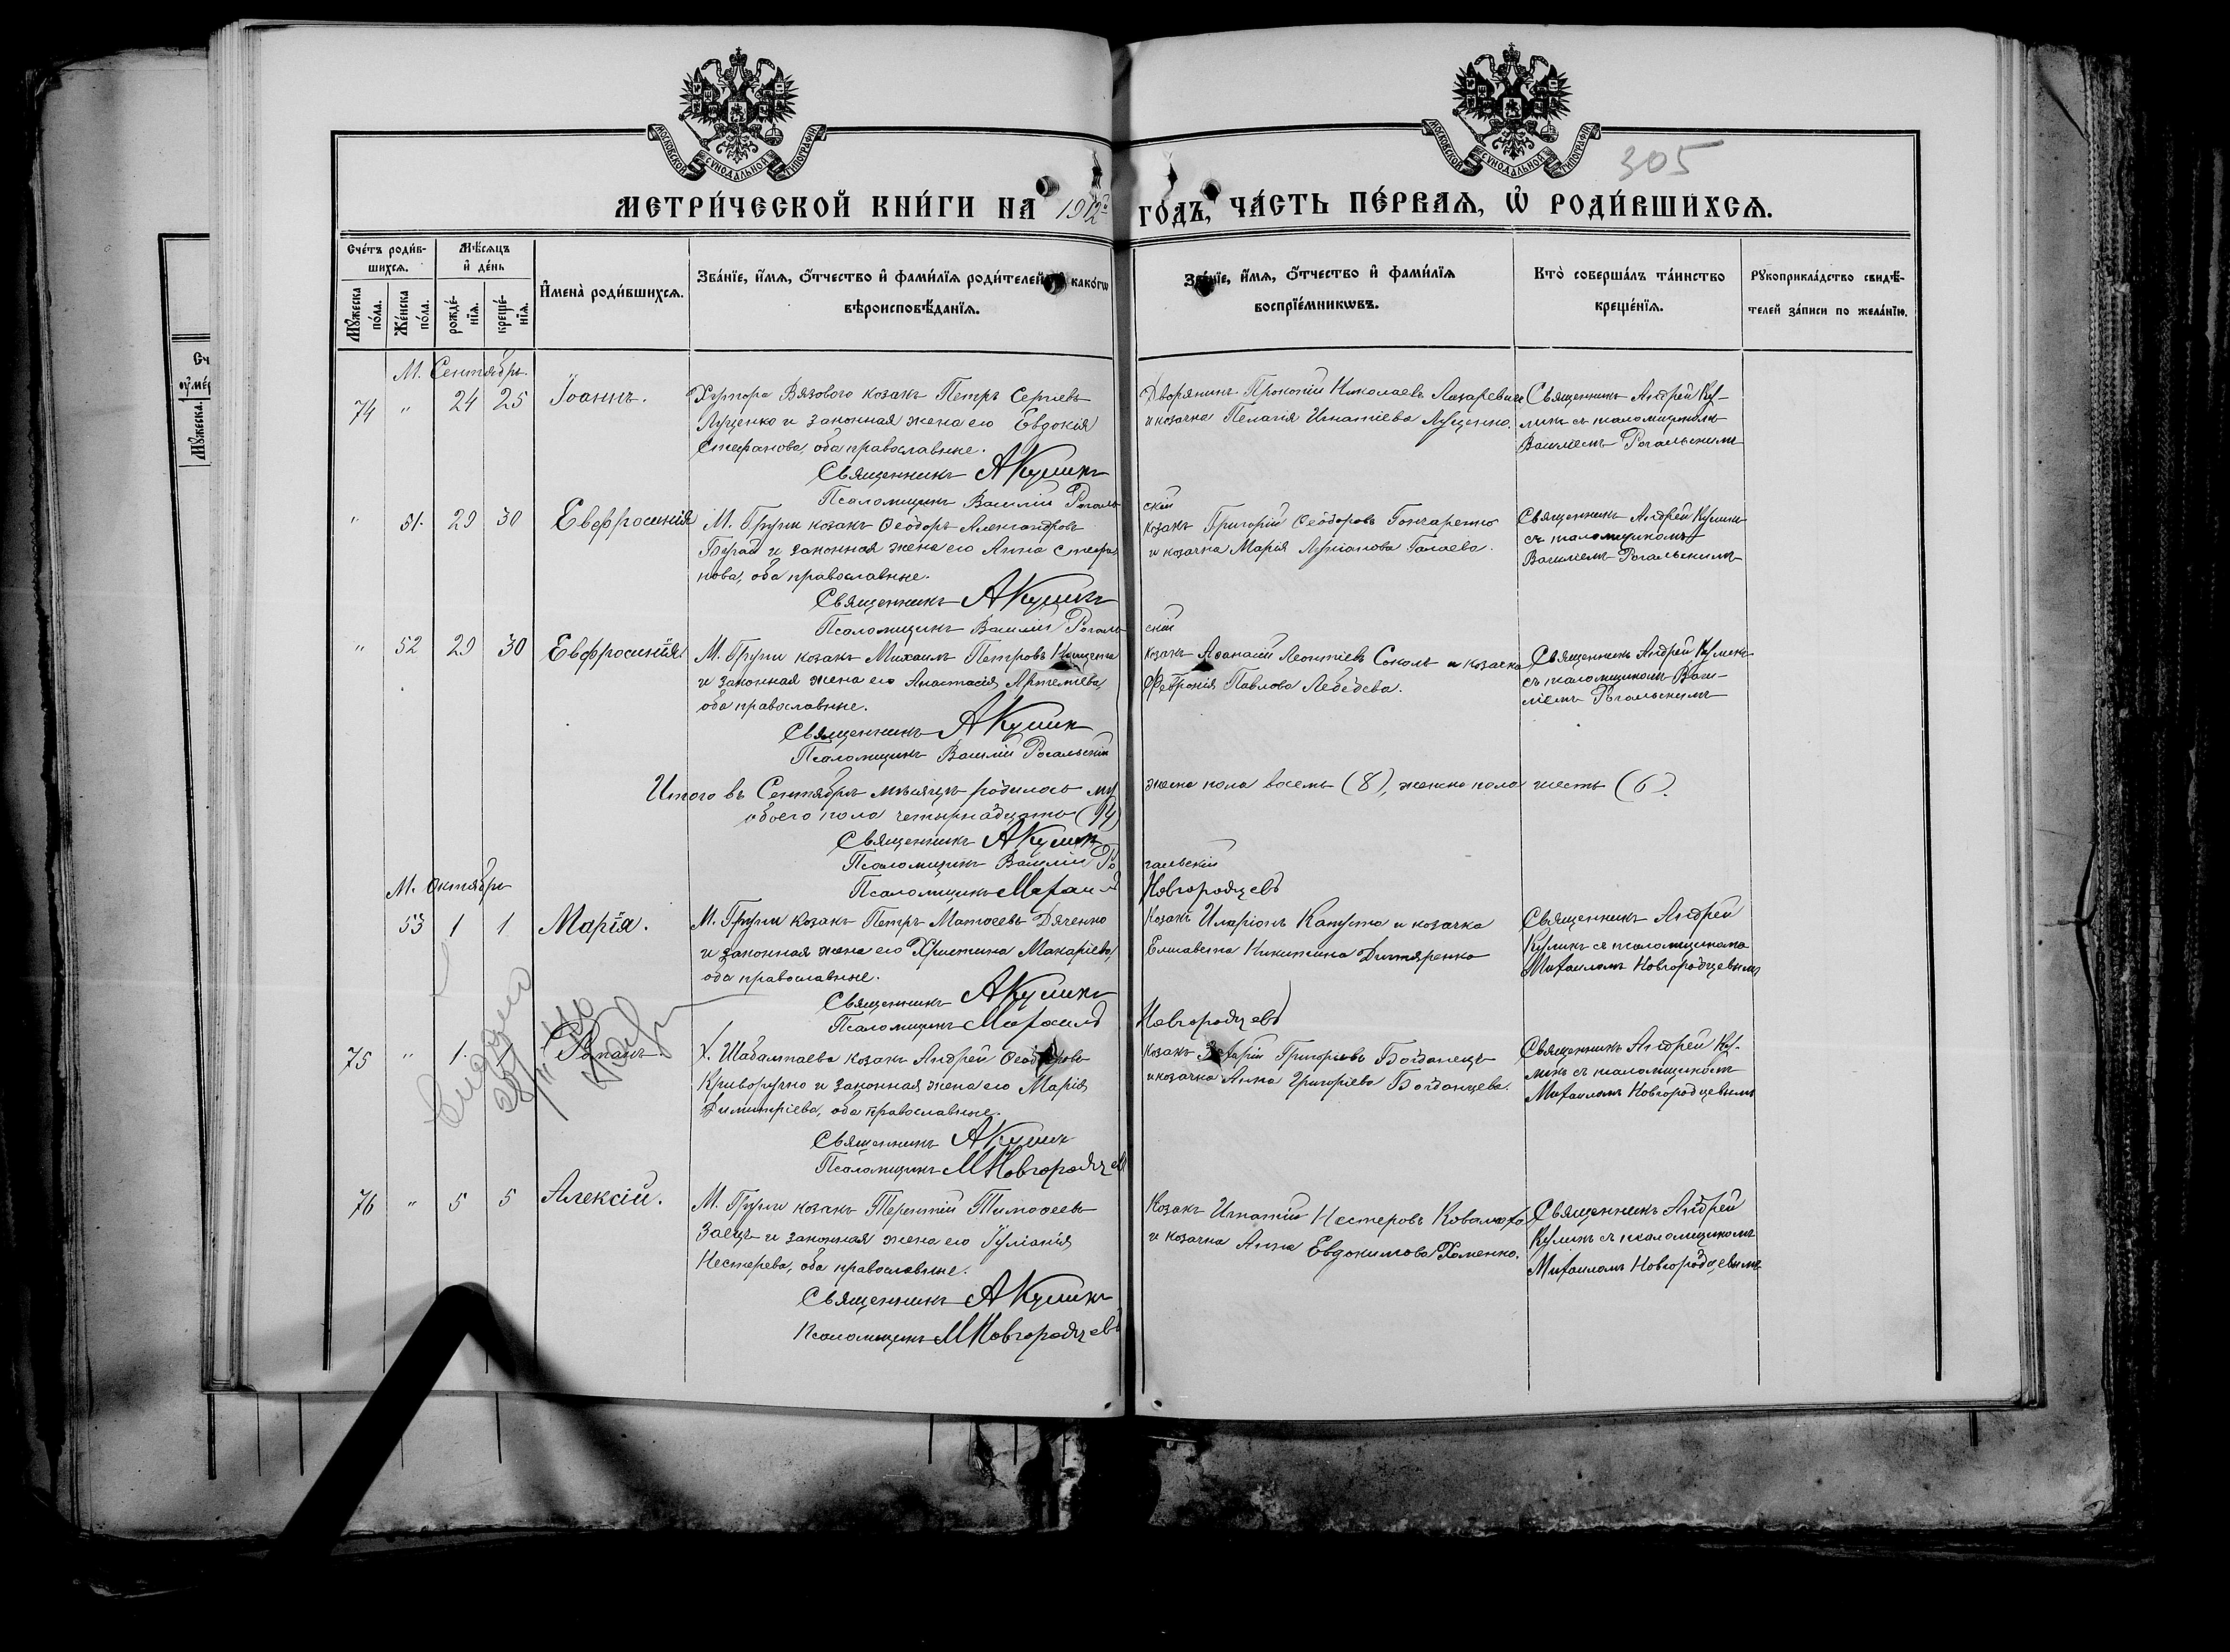 МОСКОВСКОЙ СѴНОДАЛЬНОЙ ТИПОГРАФІИ
МОСКОВСКОЙ СѴНОДАЛЬНОЙ ТИПОГРАФІИ
305
МЕТРИ́ЧЕСКОЙ КНИ́ГИ НА 1912 ГОДЪ, ЧА́СТЬ ПЕ́РВАѦ, Ѡ҆ РОДИ́ВШИХСѦ.
Сче́тъ роди́в-
шихсѧ.
Мѣ́сѧцъ
и҆ де́нь
Мꙋ́жеска
по́ла.
Же́нска
по́ла.
рожде́-
нїѧ.
креще́-
нїѧ.
И҆мена̀ роди́вшихсѧ.
Зва́нїе, и҆́мѧ, ѻ҆́тчество и҆ фами́лїѧ роди́телей и҆ како́гѡ
вѣроисповѣ́данїѧ.
Зва́нїе, и҆́мѧ, ѻ҆́тчество и҆ фами́лїѧ
воспрїе́мникѡвъ.
Кто̀ соверша́лъ та́инство
креще́нїѧ.
Рꙋкоприкла́дство свидѣ́-
телей за́писи по жела́нїю.
М. Сентябрь.
74 " 24 25 Іоаннъ. Хутора Вязового козакъ Петръ Сергіевъ
Луценко и законная жена его Евдокія
Стефанова, оба православные.
Священникъ АКуликъ
Псаломщикъ Василій Рогаль
скій
Дворянинъ Прокопій Николаевъ Лазаревичъ
и козачка Пелагія Игнатіева Луценко.
Священникъ Андрей Ку-
ликъ съ псаломщикомъ
Василіемъ Рогальскимъ
" 51. 29 30 Евфросинія М. Груни козакъ Ѳеодоръ Александровъ
Бугай и законная жена его Анна Стефа
нова, оба православные.
Священникъ АКуликъ
Псаломщикъ Василій Рогаль
скій
козакъ Григорій Ѳеодоровъ Гончаренко
и козачка Марія Лукіанова Галаева.
Священникъ Андрей Куликъ
съ псаломщикомъ
Василіемъ Рогальскимъ
" 52 29 30 Евфросинія М. Груни козакъ Михаилъ Петровъ
и законная жена его Анастасія Артеміева,
оба православные.
Священникъ АКуликъ
Псаломщикъ Василій Рогальскій
козакъ Аѳанасій Леонтіевъ Соколъ и козачка
Февронія Павлова Лебедева.
Священникъ Андрей Куликъ
съ псаломщикомъ Васи-
ліемъ Рогальскимъ
Итого въ Сентябрѣ мѣсяцѣ родилось му
жеска пола восемь (8), женска пола шесть (6).
обоего пола четырнадцать (14)
Священникъ АКуликъ
Псаломщикъ Василій Ро
гальскій
Псаломщикъ Михаилъ
Новгородцевъ
М. Октябрь
53 1 1 Марія. М. Груни козакъ Петръ Матѳеевъ Дяченко
и законная жена его Христина Макаріева,
оба православные.
Священникъ АКуликъ
Псаломщикъ Михаилъ
Новгородцевъ
Козакъ Иларіонъ Капуста и козачка
Елисавета Никитина Дитяренко
Священникъ Андрей
Куликъ съ псаломщикомъ
Михаиломъ Новгородцевымъ
75 " 1. Романъ. Х. Шабалтаева козакъ Андрей Ѳеодоровъ
Криворучко и законная жена его Марія
Димитріева, оба православные.
Священникъ АКуликъ
Псаломщикъ МНовгородцевъ
Козакъ Захарій Григорьевъ Богданецъ
и козачка Анна Григоріева Богданцева.
Священникъ Андрей Ку-
ликъ съ псаломщикомъ
Михаиломъ Новгородцевымъ
76 " 5 5 Алексій. М. Груни козакъ Терентій Тимоѳеевъ
Заецъ и законная жена его Іуліанія
Нестерева, оба православные.
Священникъ АКуликъ
Псаломщикъ МНовгородцевъ
Козакъ Игнатій Нестеровъ
и козачка Анна Евдокимова Хоменко.
Священникъ Андрей
Куликъ съ псаломщикомъ
Михаиломъ Новгородцевымъ